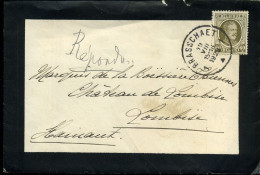 BRASSCHAET
Répondu
Marquis de la Boëssière Thiennes
Château de Lombise
Lombise
Hainaut